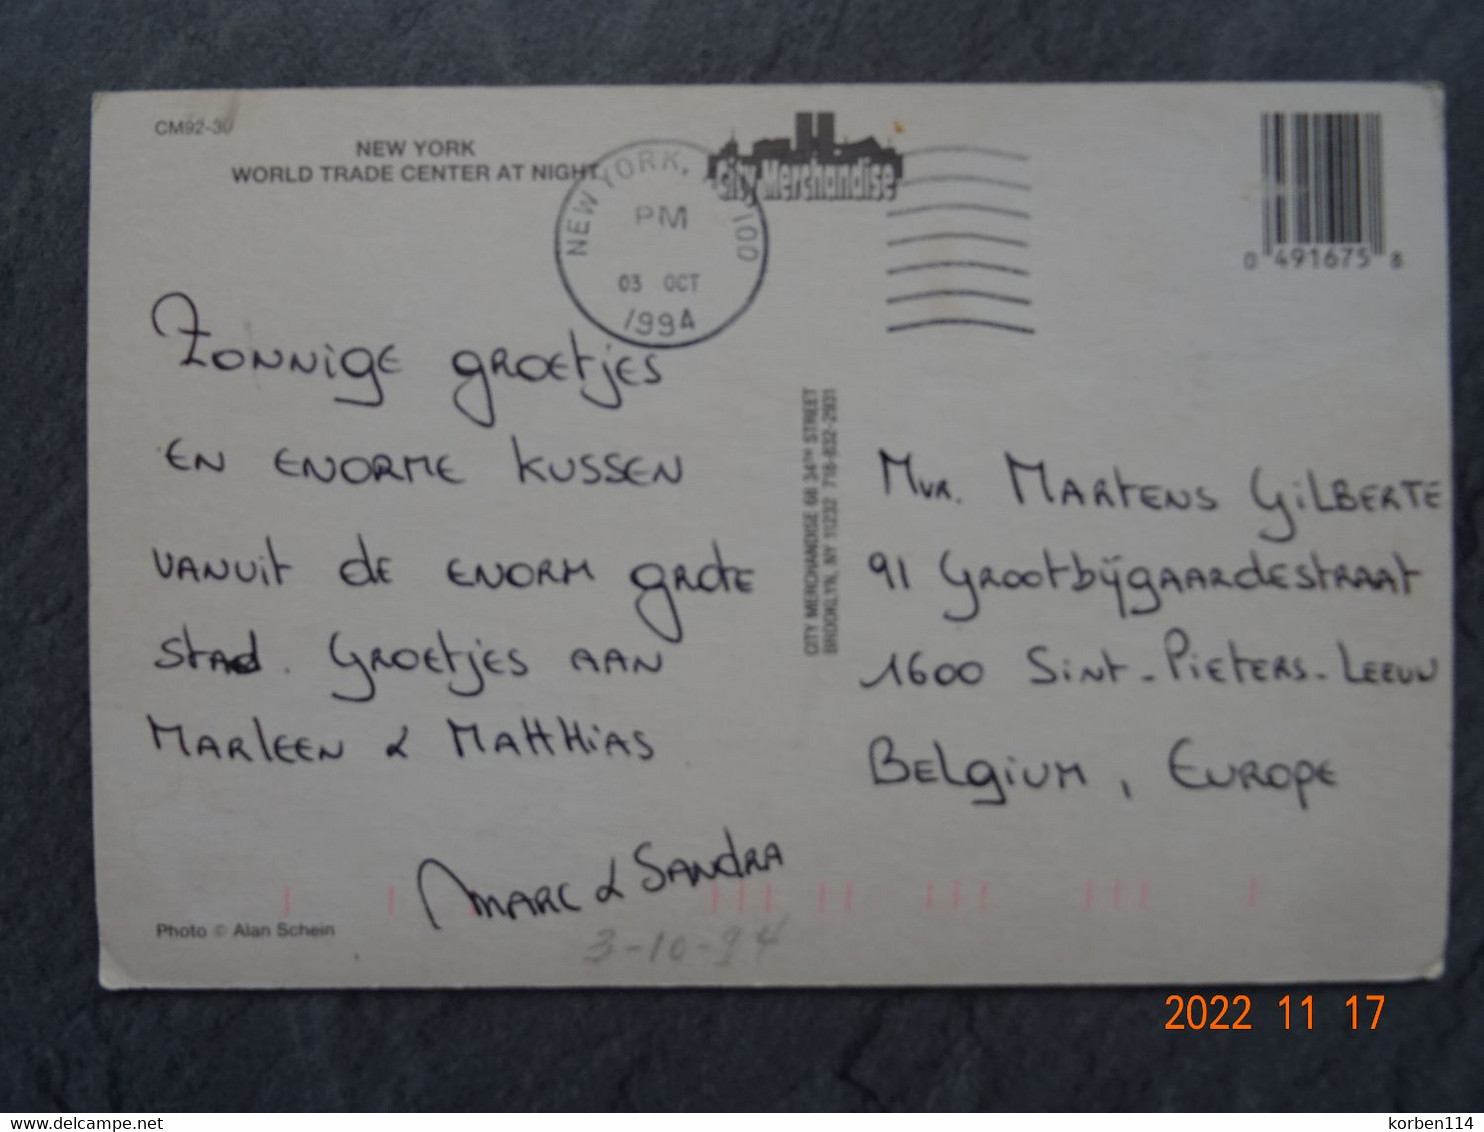 CM92-30
NEW YORK
WORLD TRADE CENTER AT NIGHT
City Merchandise
NEW YORK, 100
PM
03 OCT
1994
0 491675 8
Zonnige groetjes
en enorme kussen
vanuit de enorm grote
stad. Groetjes aan
Marleen & Matthias
Marc & Sandra
3-10-94
Photo © Alan Schein
CITY MERCHANDISE 68 34TH STREET
BROOKLYN, NY 11232 718-832-2931
Mvr. Martens Gilberte
91 Grootbijgaardestraat
1600 Sint-Pieters-Leeuw
Belgium, Europe
2022 11 17
korben114